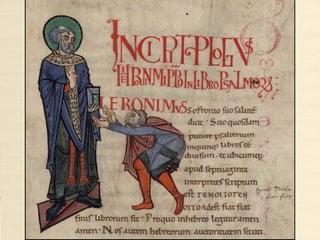 INCIPIT PLOGVS
IN LIBRO PSALMORV
IERONIMVS Sofronio suo salute
dicit. Scio quosdam
putare psalterium
inquinq; libros
diuisum. et ubicumq;
apud septuaginta
interpretes scriptum
est
idest fiat fiat
finis librorum sit. Pro quo inhebreo legitur amen
amen. Nos autem hebreorum auctoritatem secuti